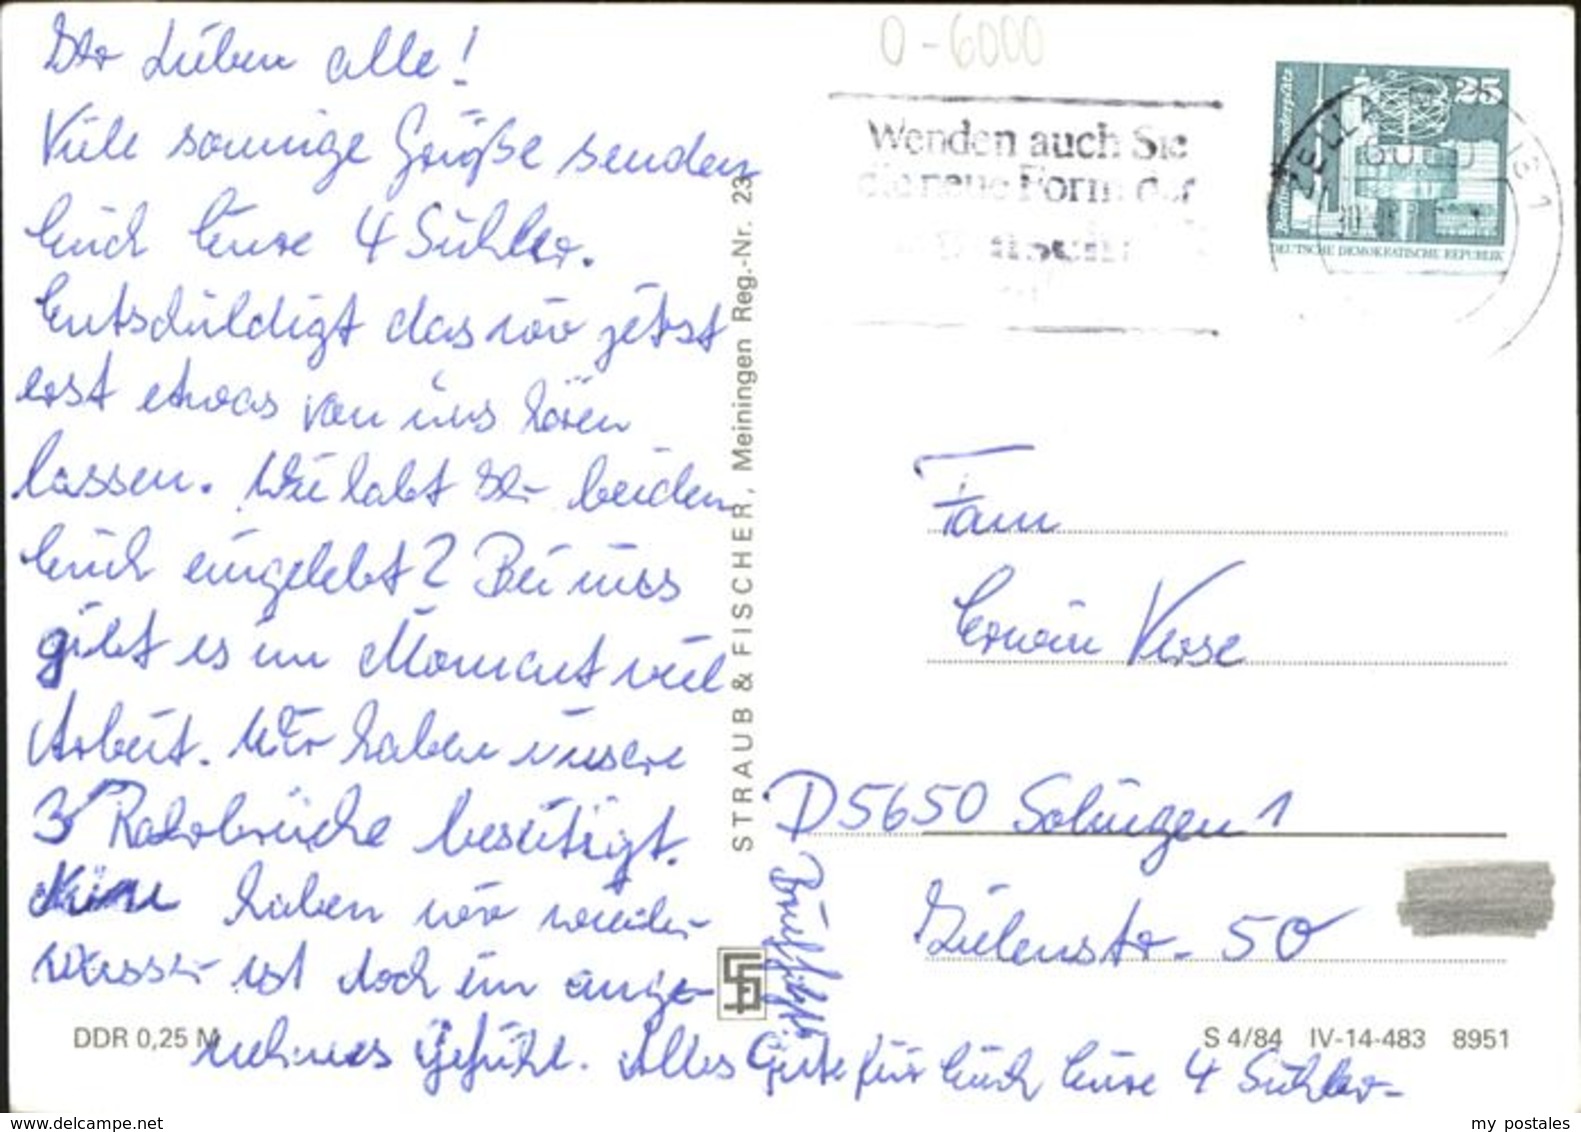 Ihr Lieben alle!
Viele sonnige Grüße senden
Euch Eure 4 Suhler.
Entschuldigt das wir jetzt
erst etwas von uns hören
lassen. Wie habt Ihr beiden
Euch eingelebt? Bei uns
gibt es im Moment viel
Arbeit. Wir haben unsere
3 Rohrbrüche beseitigt.
Nun haben wir wieder
Wasser ist doch ein ange-
nehmes Gefühl. Alles Gute für Euch Eure 4 Suhler-
Brief folgt.
DDR 0,25 M
STRAUB & FISCHER, Meiningen Reg.-Nr. 23
0-6000
Wenden auch Sie
die neue Form der
25
Berlin, Alexanderplatz
DEUTSCHE DEMOKRATISCHE REPUBLIK
ZELLA
6000
Fam
Erwin Verse
D 5650 Solingen 1
Eulenstr. 50
S 4/84 IV-14-483 8951
www.delcampe.net
my postales